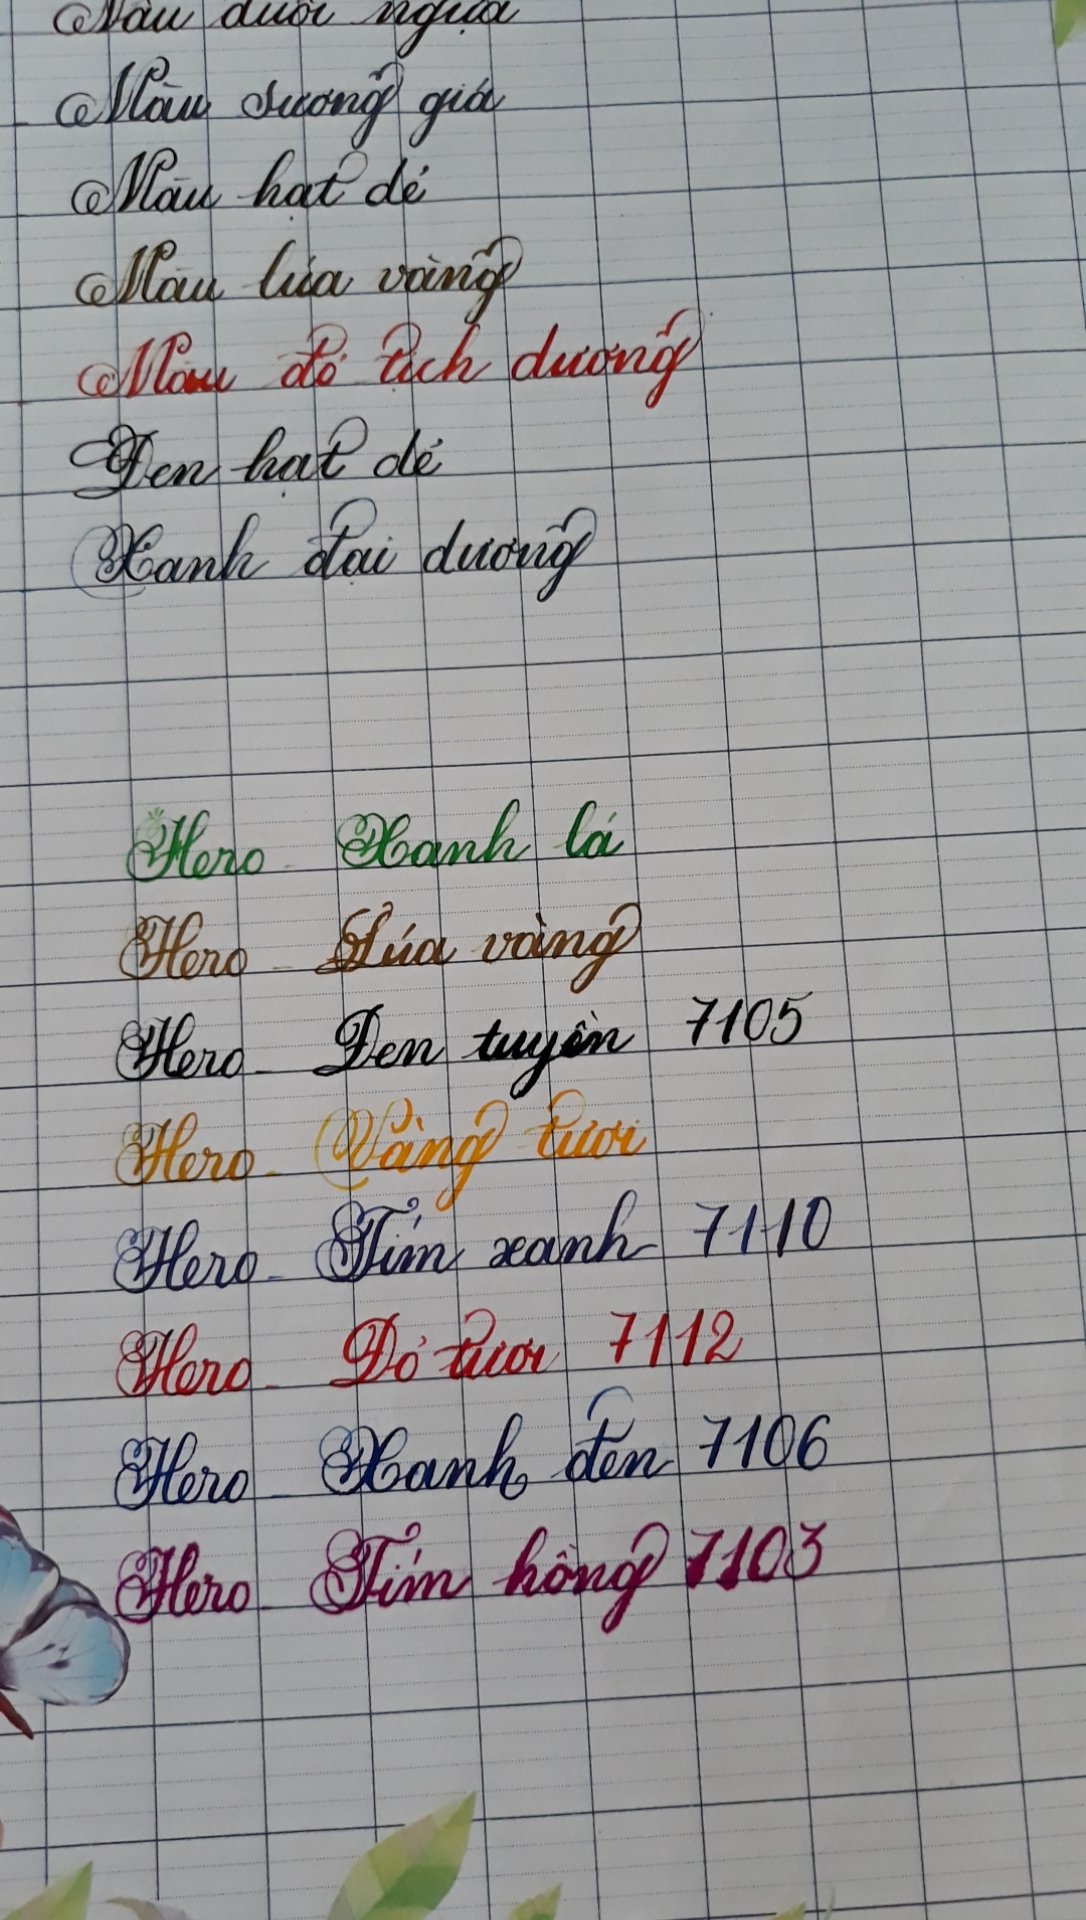 Nâu đuôi ngựa
Màu sương giá
Màu hạt dẻ
Màu lúa vàng
Màu đỏ tịch dương
Đen hạt dẻ
Xanh đại dương
Hero Xanh lá
Hero - Lúa vàng
Hero - Đen tuyền 7105
Hero - Vàng tươi
Hero - Tím xanh 7110
Hero - Đỏ tươi 7112
Hero - Xanh đen 7106
Hero - Tím hồng 7103